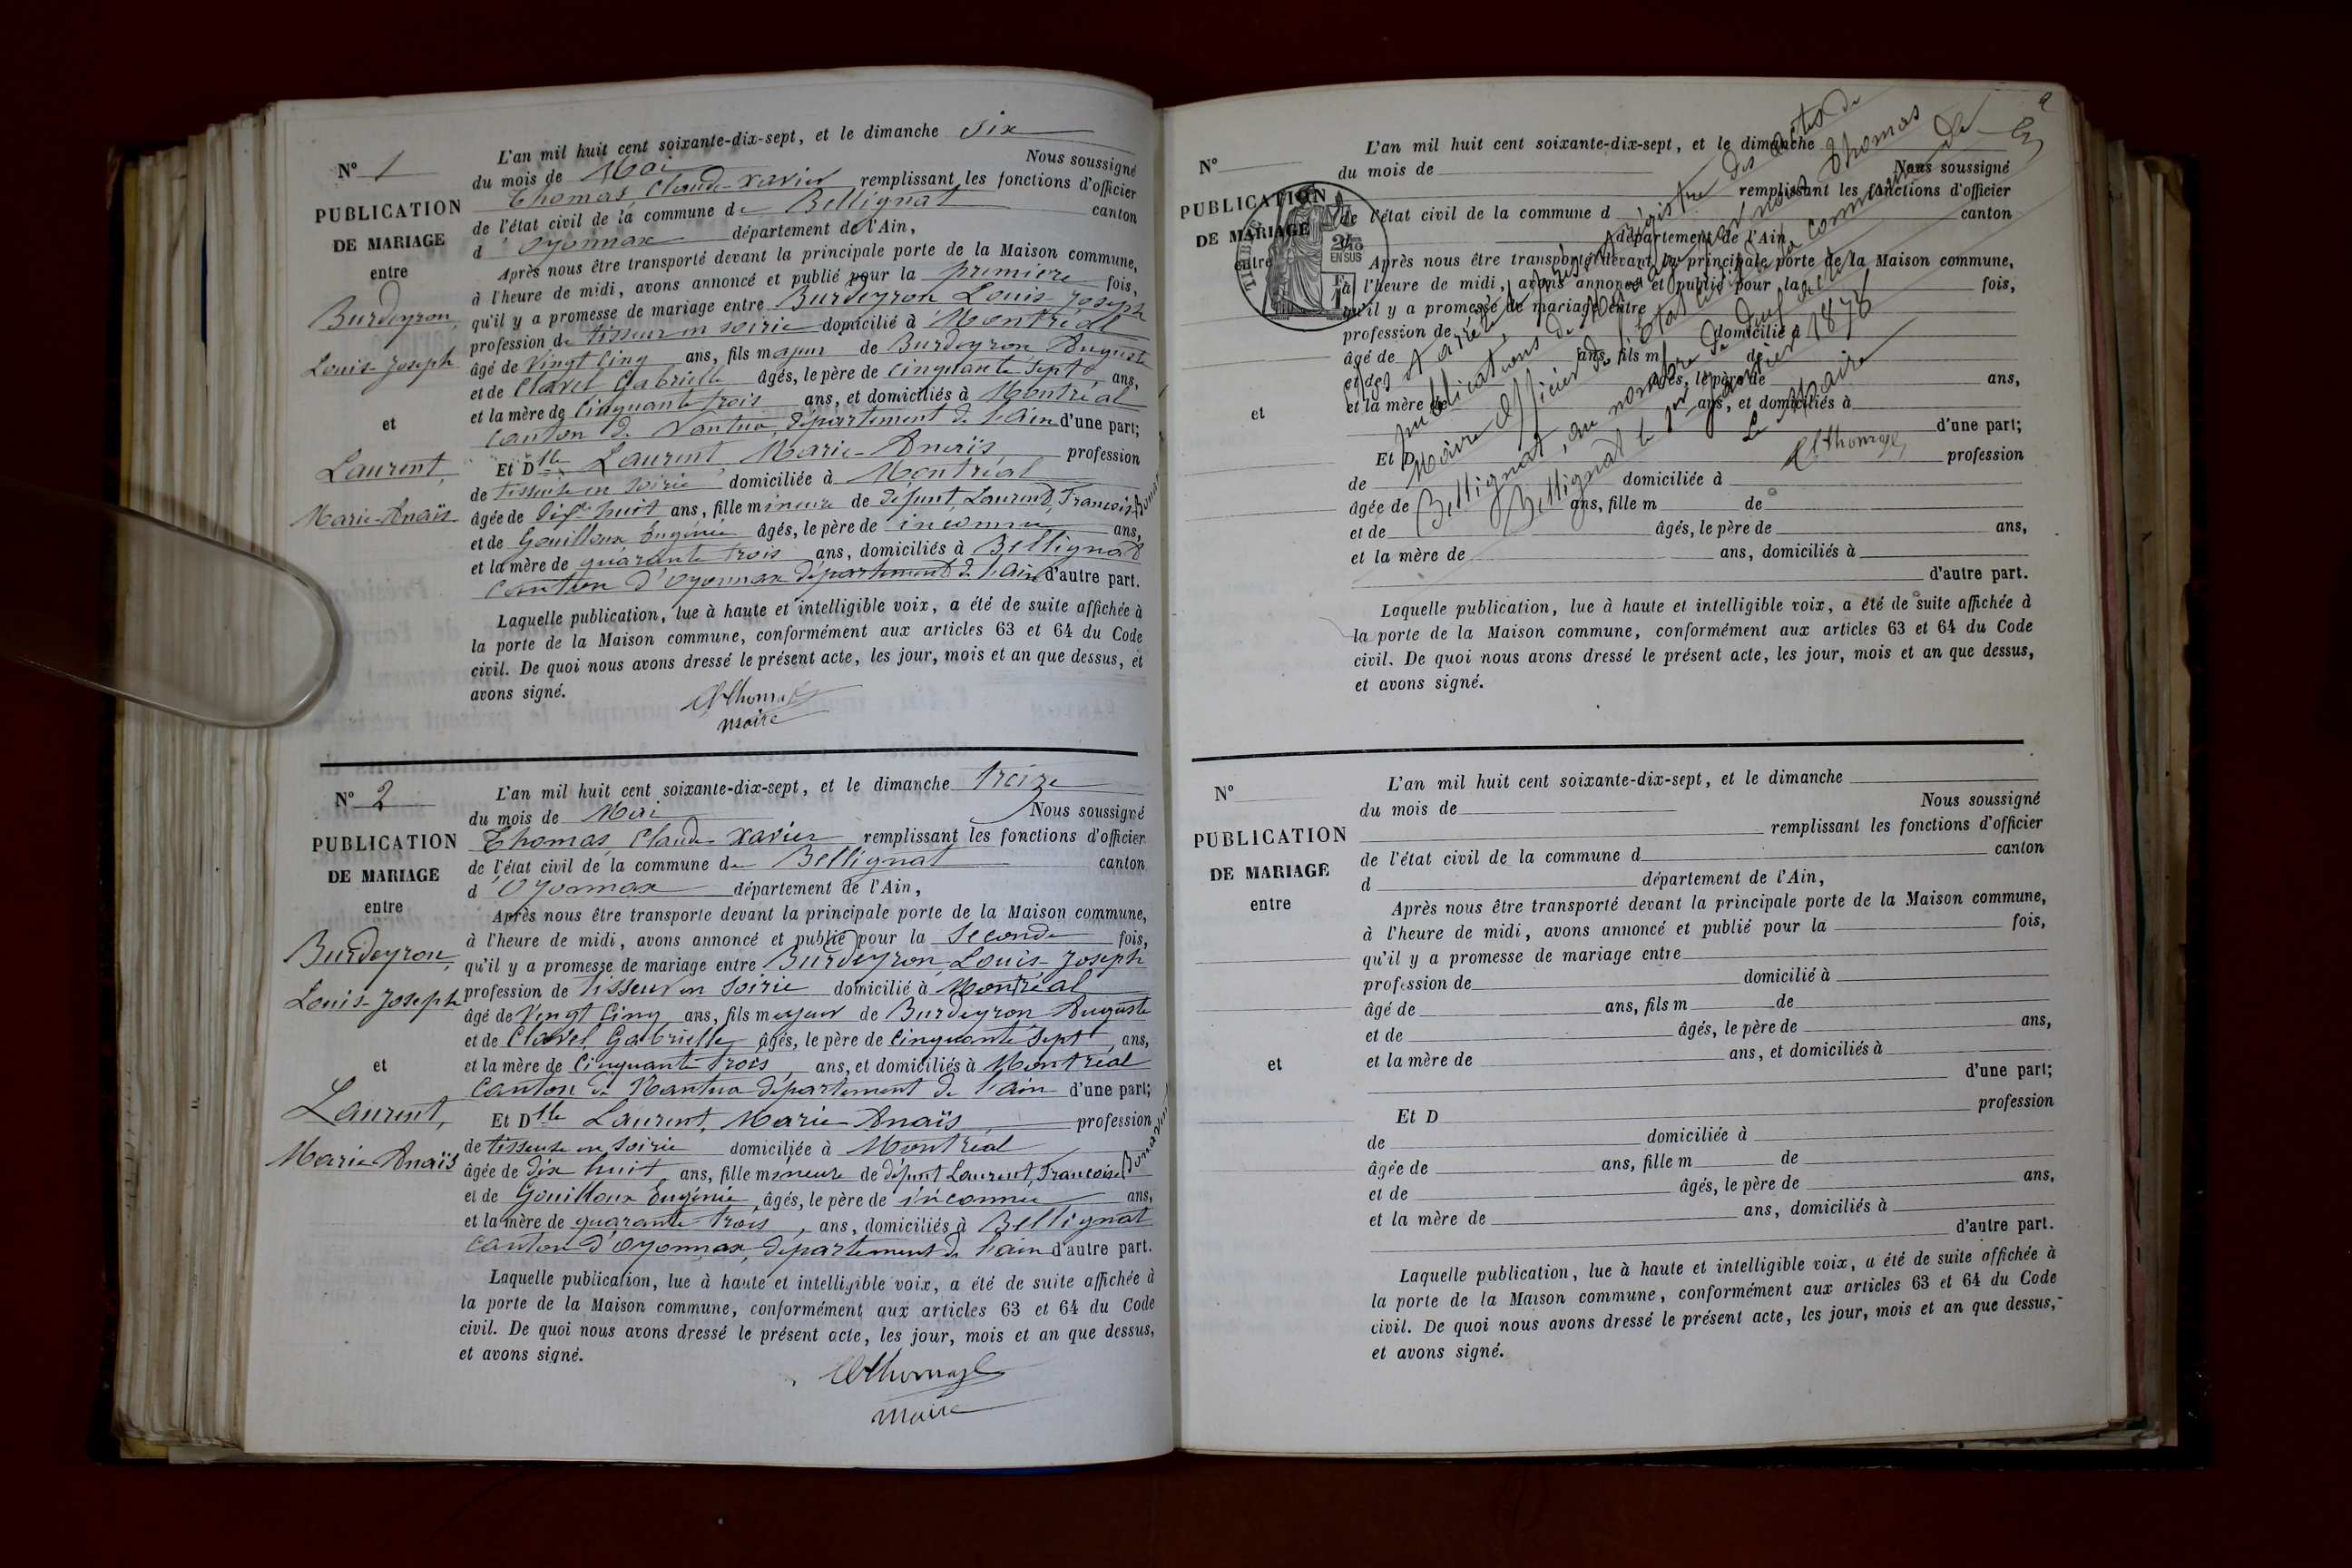 N° 1
PUBLICATION
DE MARIAGE
entre
Burdeyron,
Louis-Joseph
et
Laurent,
Marie-Anaïs
L'an mil huit cent soixante-dix-sept, et le dimanche six
du mois de Mai Nous soussigné
Thomas, Claude-Xavier remplissant les fonctions d'officier
de l'état civil de la commune de Bellignat canton
d'Oyonnax département de l'Ain,
Après nous être transporté devant la principale porte de la Maison commune,
à l'heure de midi, avons annoncé et publié pour la première fois,
qu'il y a promesse de mariage entre Burdeyron Louis-Joseph
profession de tisseur en soirie domicilié à Montréal
âgé de Vingt Cinq ans, fils majeur de Burdeyron Auguste
et de Clavel Gabrielle âgés, le père de cinquante sept ans,
et la mère de Cinquante trois ans, et domiciliés à Montréal
canton de Nantua, département de l'ain d'une part;
Et Dlle Laurent, Marie-Anaïs, profession
de tisseuse en soirie domiciliée à Montréal
âgée de dix huit ans, fille mineure de défunt, Laurent, François
et de Gouilloux Eugénie âgés, le père de inconnu ans,
et la mère de quarante trois ans, domiciliés à Bellignat
Canton d'Oyonnax département de l'Ain d'autre part.
Laquelle publication, lue à haute et intelligible voix, a été de suite affichée à
la porte de la Maison commune, conformément aux articles 63 et 64 du Code
civil. De quoi nous avons dressé le présent acte, les jour, mois et an que dessus, et
avons signé.
Clthomas
maire
N° 2
PUBLICATION
DE MARIAGE
entre
Burdeyron,
Louis-Joseph
et
Laurent,
Marie Anaïs
L'an mil huit cent soixante-dix-sept, et le dimanche treize
du mois de Mai Nous soussigné
Thomas, Claude-Xavier remplissant les fonctions d'officier
de l'état civil de la commune de Bellignat canton
d'Oyonnax département de l'Ain,
Après nous être transporté devant la principale porte de la Maison commune,
à l'heure de midi, avons annoncé et publié pour la Seconde fois,
qu'il y a promesse de mariage entre Burdeyron, Louis-Joseph
profession de tisseur en Soirie domicilié à Montréal
âgé de Vingt Cinq ans, fils majeur de Burdeyron Auguste
et de Clavel Gabrielle âgés, le père de cinquante Sept ans,
et la mère de Cinquante trois, ans, et domiciliés à Montréal
Canton de Nantua département de l'ain d'une part;
Et Dlle Laurent, Marie Anaïs, profession
de tisseuse en Soirie domiciliée à Montréal
âgée de dix huit, ans, fille mineure de défunt Laurent, François
et de Gouilloux Eugénie, âgés, le père de inconnu ans,
et la mère de quarante trois, ans, domiciliés à Bellignat
canton d'Oyonnax, département de l'ain d'autre part.
Laquelle publication, lue à haute et intelligible voix, a été de suite affichée à
la porte de la Maison commune, conformément aux articles 63 et 64 du Code
civil. De quoi nous avons dressé le présent acte, les jour, mois et an que dessus,
et avons signé.
Clthomas
maire
N°
PUBLICATION
DE MARIAGE
entre
et
L'an mil huit cent soixante-dix-sept, et le dimanche
du mois de Nous soussigné
remplissant les fonctions d'officier
de l'état civil de la commune d canton
d département de l'Ain,
Après nous être transporté devant la principale porte de la Maison commune,
à l'heure de midi, avons annoncé et publié pour la fois,
qu'il y a promesse de mariage entre
profession de domicilié à
âgé de ans, fils m de
et de âgés, le père de ans,
et la mère de ans, et domiciliés à
d'une part;
Et D profession
de domiciliée à
âgée de ans, fille m de
et de âgés, le père de ans,
et la mère de ans, domiciliés à
d'autre part.
Laquelle publication, lue à haute et intelligible voix, a été de suite affichée à
la porte de la Maison commune, conformément aux articles 63 et 64 du Code
civil. De quoi nous avons dressé le présent acte, les jour, mois et an que dessus,
et avons signé.
Clos et arrêté le présent registre des actes de
publications de mariage par nous Thomas
Maire officier de l'état civil de la commune de
Bellignat, au nombre de deux actes
Bellignat le 1er Janvier 1878
Le Maire
Clthomas
2 10
EN SUS
N°
PUBLICATION
DE MARIAGE
entre
et
L'an mil huit cent soixante-dix-sept, et le dimanche
du mois de Nous soussigné
remplissant les fonctions d'officier
de l'état civil de la commune d canton
d département de l'Ain,
Après nous être transporté devant la principale porte de la Maison commune,
à l'heure de midi, avons annoncé et publié pour la fois,
qu'il y a promesse de mariage entre
profession de domicilié à
âgé de ans, fils m de
et de âgés, le père de ans,
et la mère de ans, et domiciliés à
d'une part;
Et D profession
de domiciliée à
âgée de ans, fille m de
et de âgés, le père de ans,
et la mère de ans, domiciliés à
d'autre part.
Laquelle publication, lue à haute et intelligible voix, a été de suite affichée à
la porte de la Maison commune, conformément aux articles 63 et 64 du Code
civil. De quoi nous avons dressé le présent acte, les jour, mois et an que dessus,
et avons signé.